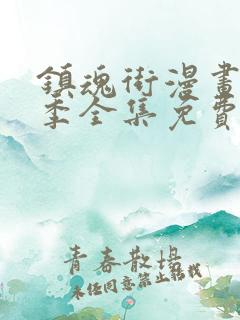 鎮魂街漫畫
季全集免費
青春散場
未經同意禁止轉載